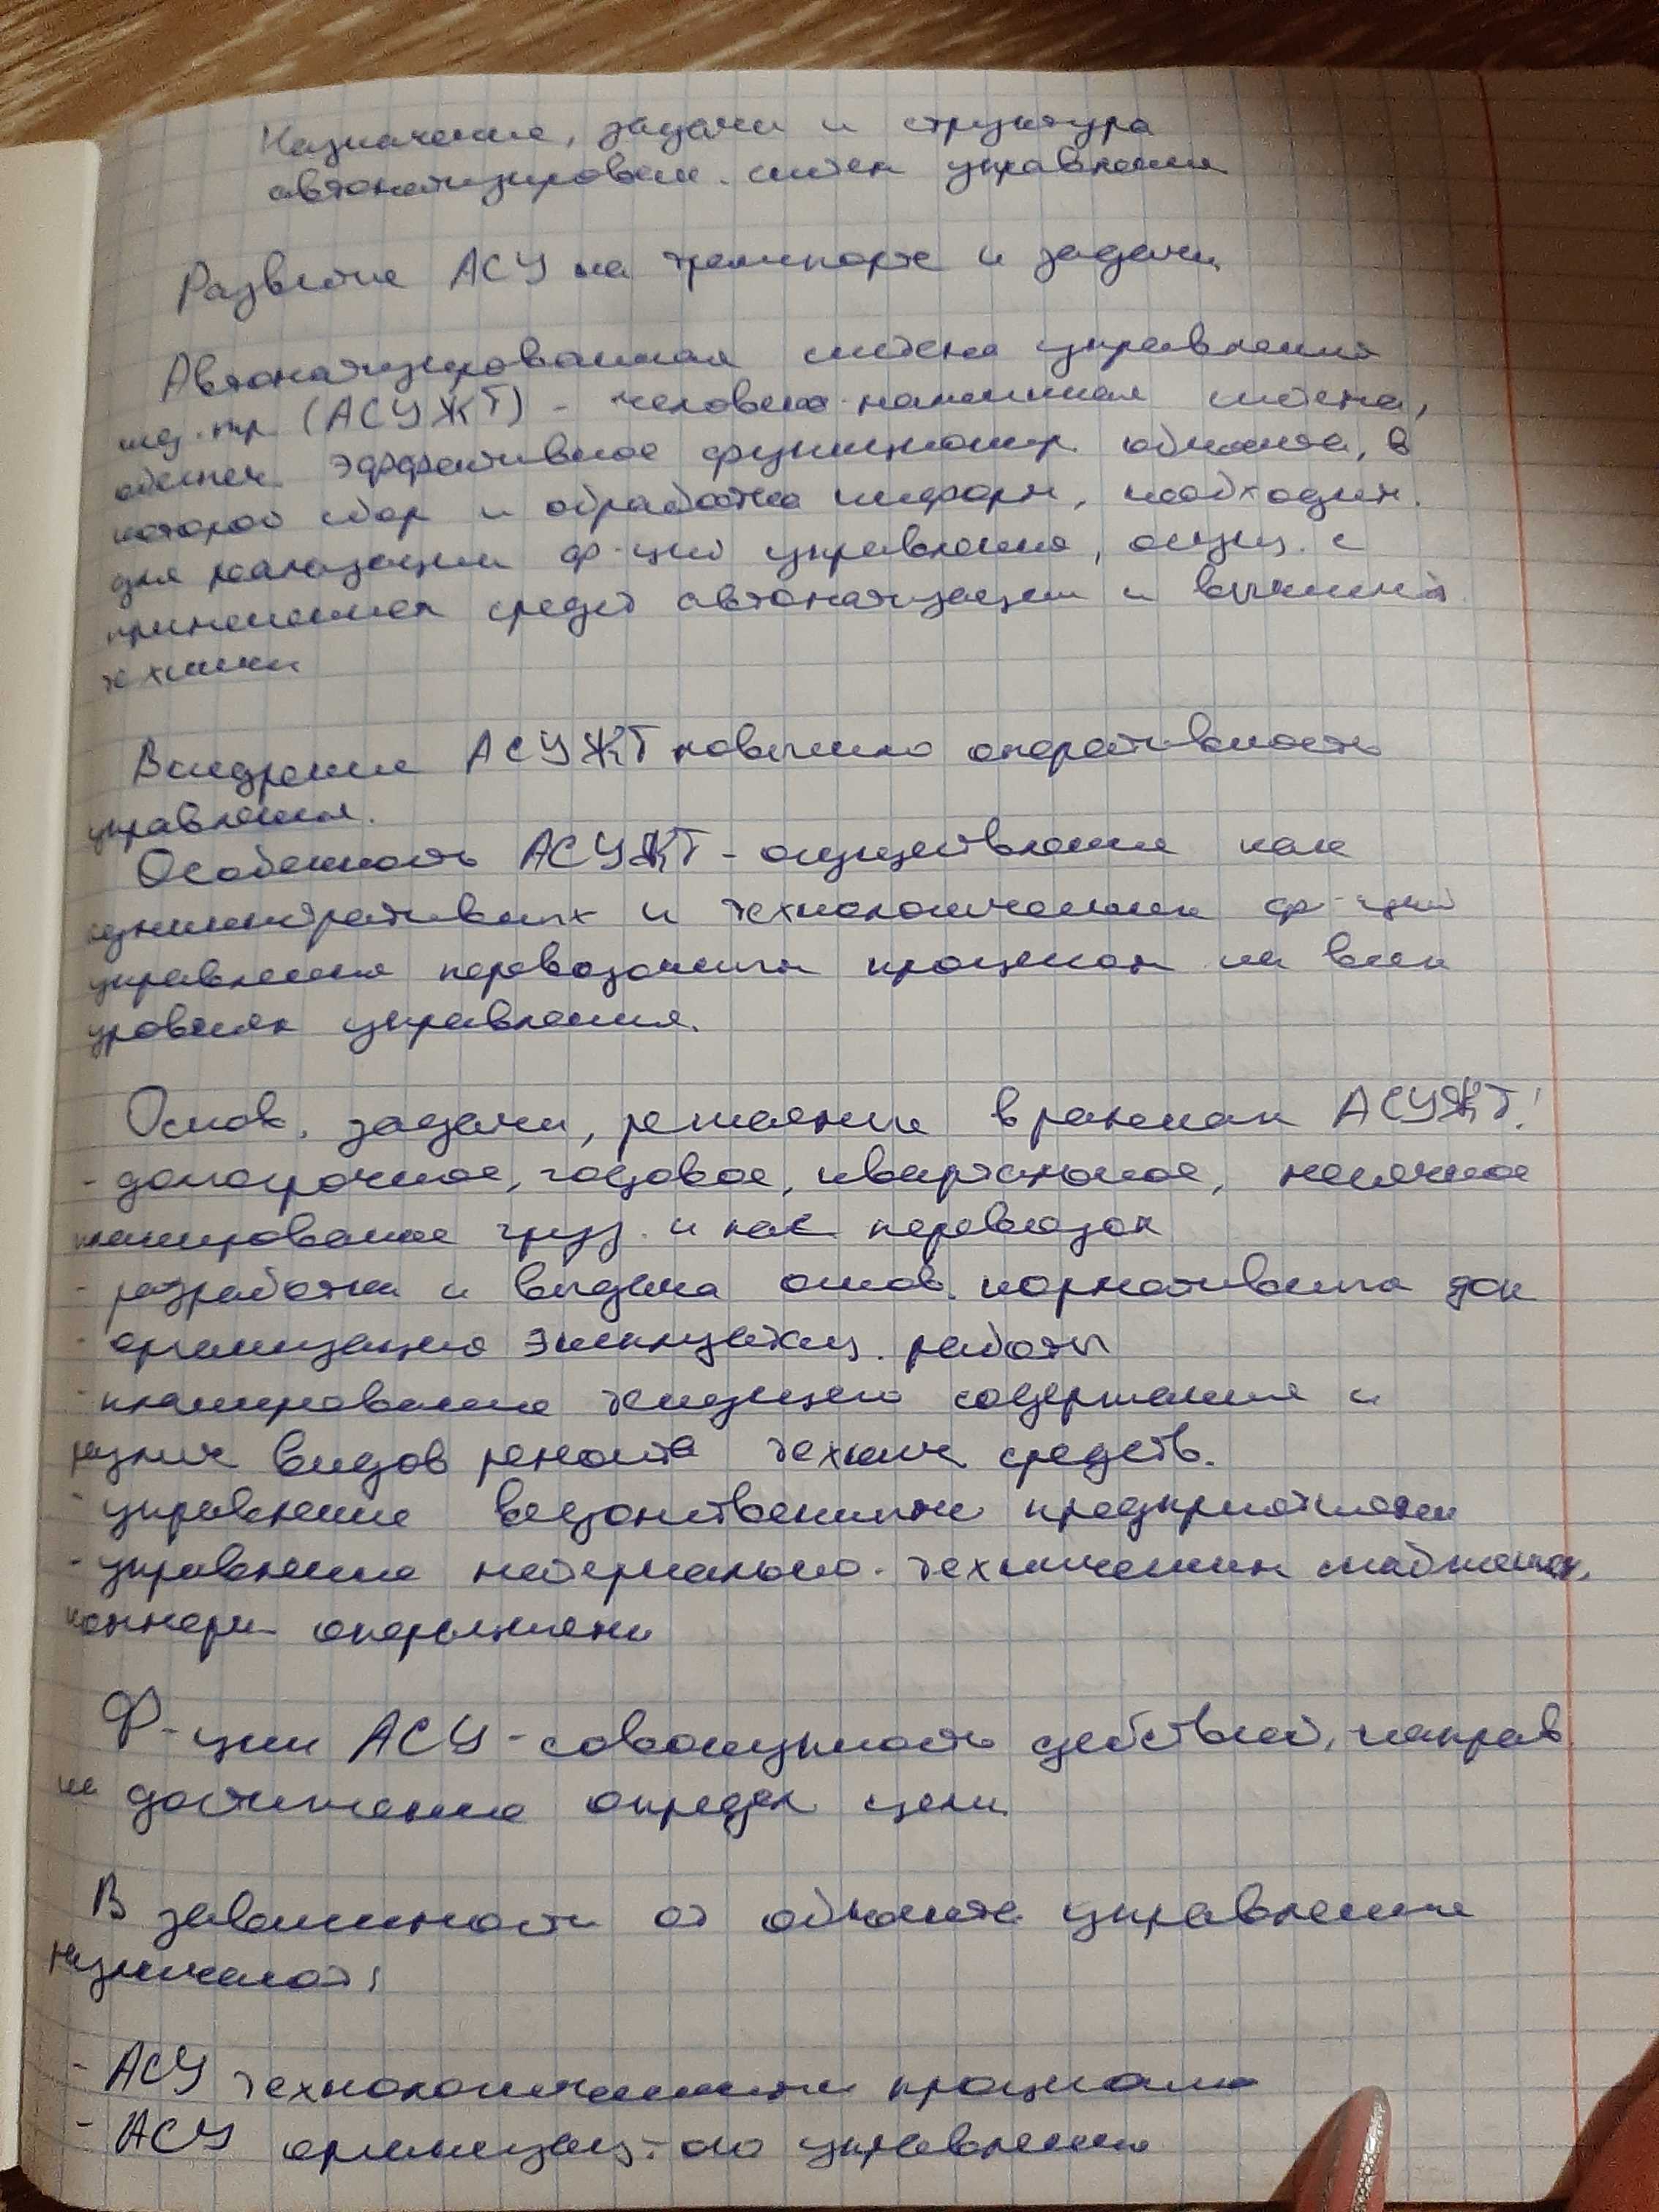 Назначение, задачи и структура
автоматизирован. систем управления
Развитие АСУ на транспорте и задачи
Автоматизированная система управления
жд. тр (АСУЖТ) - человеко-машинная система,
обеспеч. эффективное функционир. объекта, в
которой сбор и обработка информ, необходим.
для реализации ф-ций управления, осущ. с
применением средств автоматизации и вычислит
техники
Внедрение АСУЖТ повысило оперативность
управления.
Особенность АСУЖТ - осуществление как
административных и технологических ф-ций
управления перевозочным процессом на всех
уровнях управления.
Основ. задачи, решаемые в рамках АСУЖТ:
- долгосрочное, годовое, квартальное, месячное
планирование груз. и пас перевозок
- разработка и выдача основ. нормативных док
- организация эксплуатац. работы
- планирование текущего содержания и
различ видов ремонта технич средств.
- управление ведомственными предприятиями
- управление материально-техническим снабжением,
коммерч операциями
Ф-ции АСУ - совокупность действий, направ
на достижение определ цели
В зависимости от объекта управления
различают:
- АСУ технологическими процессами
- АСУ организац-ого управления